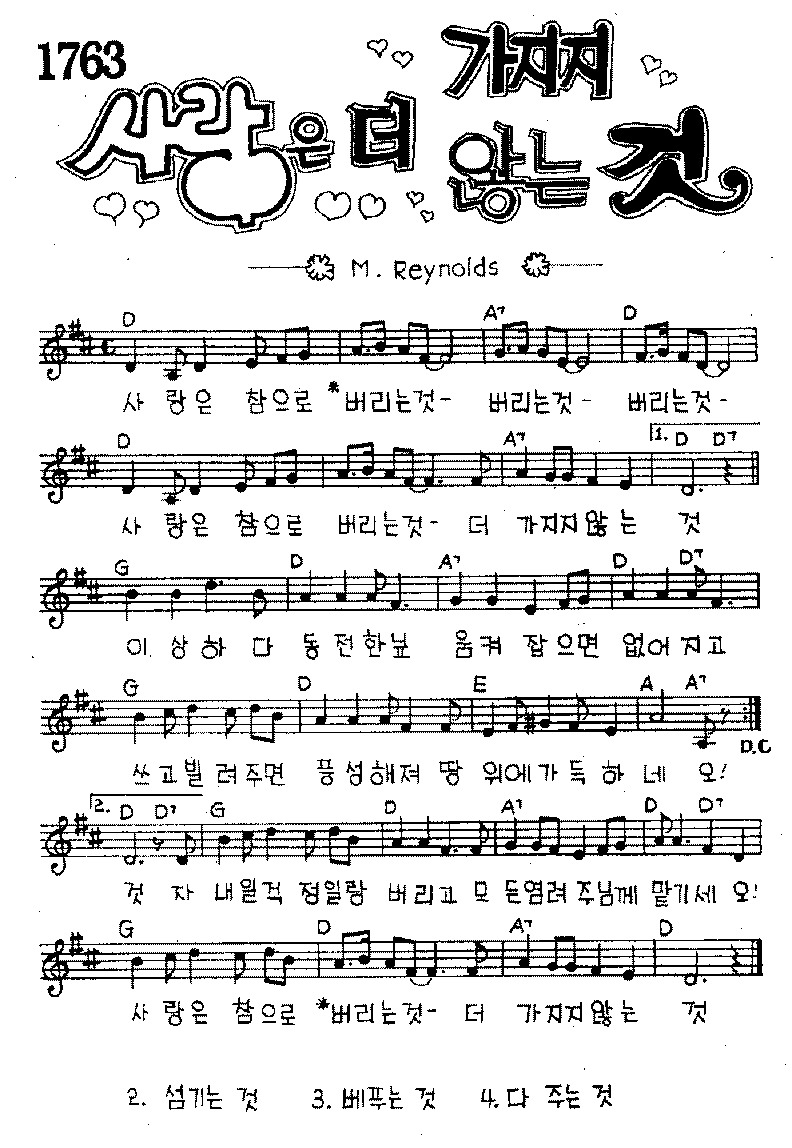 1763
사랑은 더 가지지
않는 것
M. Reynolds
D A7 D
사 랑은 참으로 *버리는것- 버리는것- 버리는것-
D A7 1. D D7
사 랑은 참으로 버리는것- 더 가지지않는 것
G D A7 D D7
이 상하 다 동전한닢 움켜 잡으면 없어지고
G D E A A7
D.C
쓰고빌려주면 풍성해져 땅 위에가득하네 오!
2. D D7 G D A7 D D7
것 자 내일걱정일랑 버리고 모든염려주님께 맡기세 오!
G D A7 D
사 랑은 참으로 *버리는것- 더 가지지않는 것
2. 섬기는 것 3. 베푸는 것 4. 다 주는 것